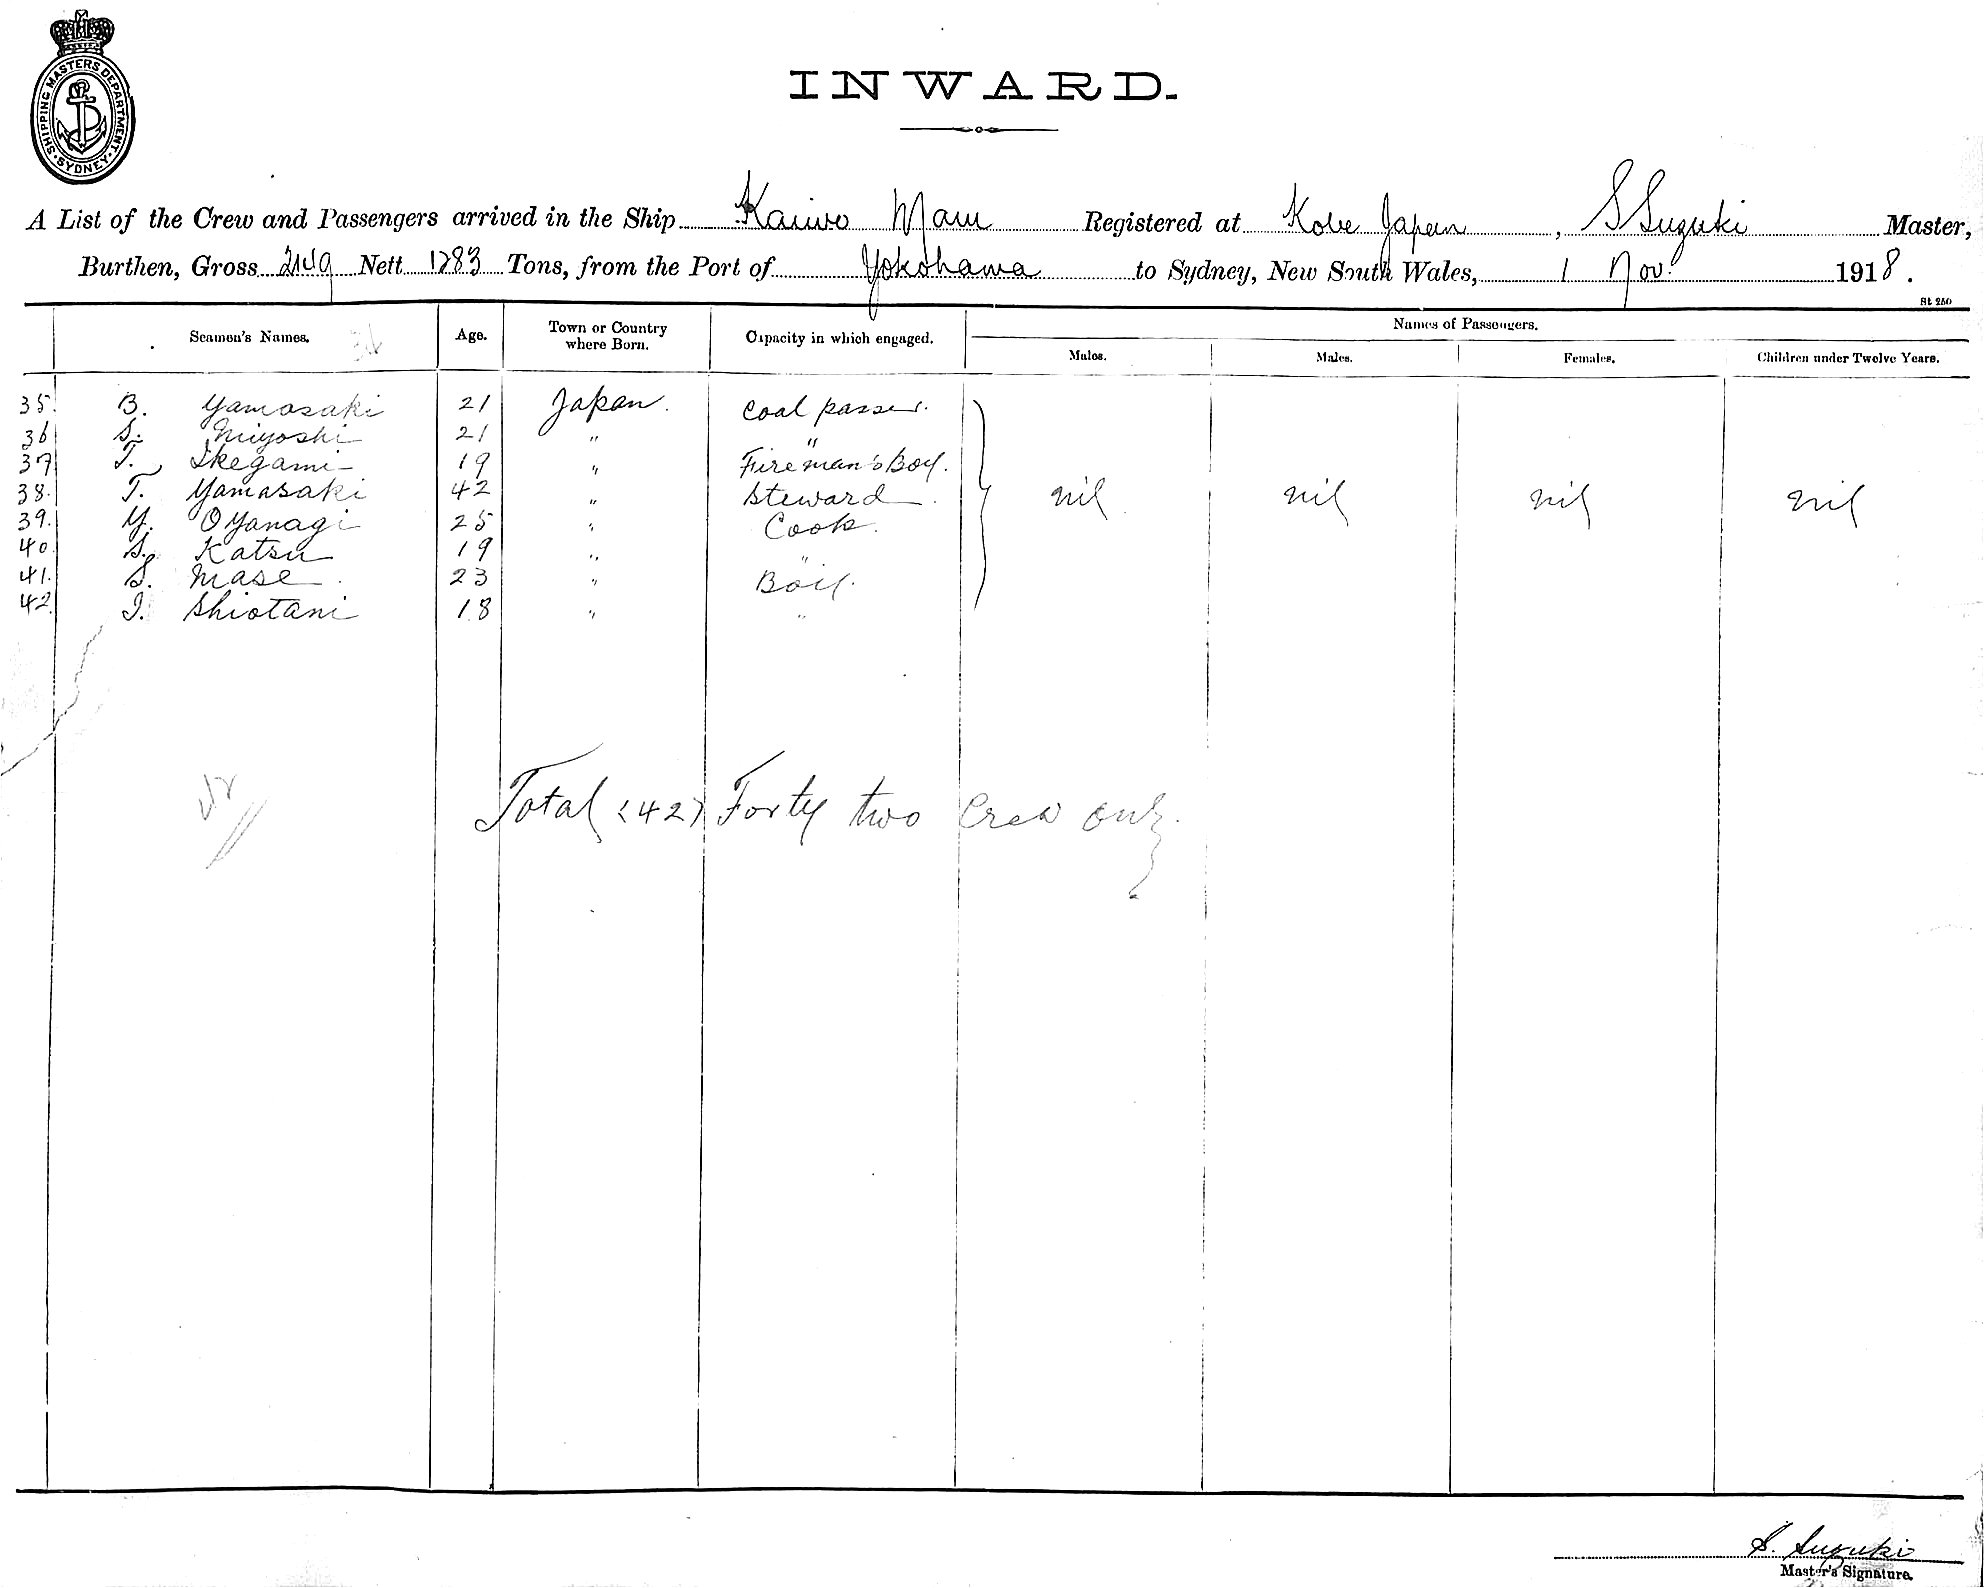 SHIPPING MASTERS DEPARTMENT · SYDNEY ·
INWARD.
A List of the Crew and Passengers arrived in the Ship Kaiwo Maru Registered at Kobe Japan, S Suzuki Master,
Burthen, Gross 2149 Nett 1283 Tons, from the Port of Yokohama to Sydney, New South Wales, 1 Nov. 1918.
St 250
Seamen's Names. Age. Town or Country where Born. Capacity in which engaged. Names of Passengers.
Males. Males. Females. Children under Twelve Years.
35. B. Yamasaki 21 Japan. Coal passer.
36 S. Miyoshi 21 " "
37 T. Ikegami 19 " Fireman's Boy.
38. T. Yamasaki 42 " Steward. nil nil nil nil
39. Y. OYanagi 25 " Cook.
40. S. Katsu 19 " "
41. S. Mase 23 " Boy.
42. I. Shiotani 18 " "
Total (42) Forty two Crew only.
S. Suzuki
Master's Signature.